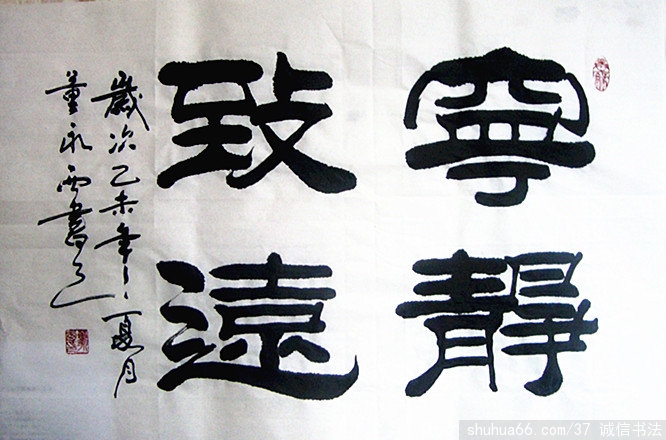 寧靜
致遠
歲次乙未年夏月
董永西書
shuhua66.com/37 诚信书法